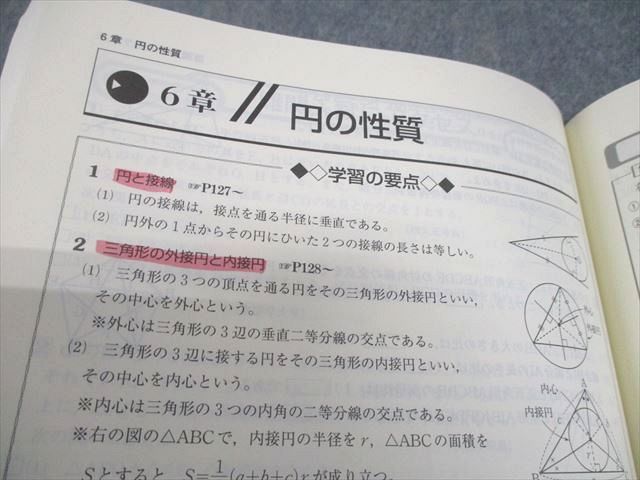 6章 円の性質
6章
円の性質
◆◇学習の要点◇◆
1 円と接線 ☞P127~
(1) 円の接線は，接点を通る半径に垂直である。
(2) 円外の1点からその円にひいた2つの接線の長さは等しい。
2 三角形の外接円と内接円 ☞P128~
(1) 三角形の3つの頂点を通る円をその三角形の外接円といい，
その中心を外心という。
※外心は三角形の3辺の垂直二等分線の交点である。
(2) 三角形の3辺に接する円をその三角形の内接円といい，
その中心を内心という。
※内心は三角形の3つの内角の二等分線の交点である。
※右の図の△ABCで，内接円の半径をr，△ABCの面積を
Sとすると，S=1/2(a+b+c)rが成り立つ。
内心
内接円
A
B